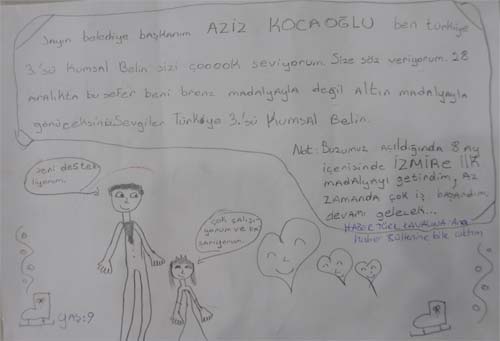 Sayın belediye başkanım AZİZ KOCAOĞLU ben türkiye
3.'sü Kumsal Belin sizi çooook seviyorum. Size söz veriyorum. 28
aralıkta bu sefer beni bronz madalyayla değil Altın madalyayla
göruçeksiniz. Sevgiler Türkiye 3.'sü Kumsal Belin.
Not: Buzumuz açıldığında 8 ay
içerisinde İZMİRE İLK
madalyayı getirdim, AZ
ZAMANDA çok iş başardım
devamı gelecek...
HABER TÜRK KANALINA Ana
haber bültenine bile çıktım
seni destek
liyorum.
çok çalışı-
yorum ve ba
şarıyorum.
yaş:9